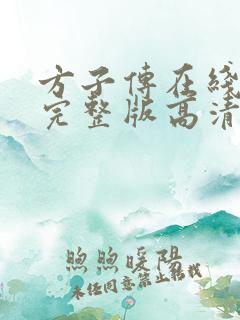 方子傳在綫
完整版高清
煦煦暖陽
未经同意禁止转载